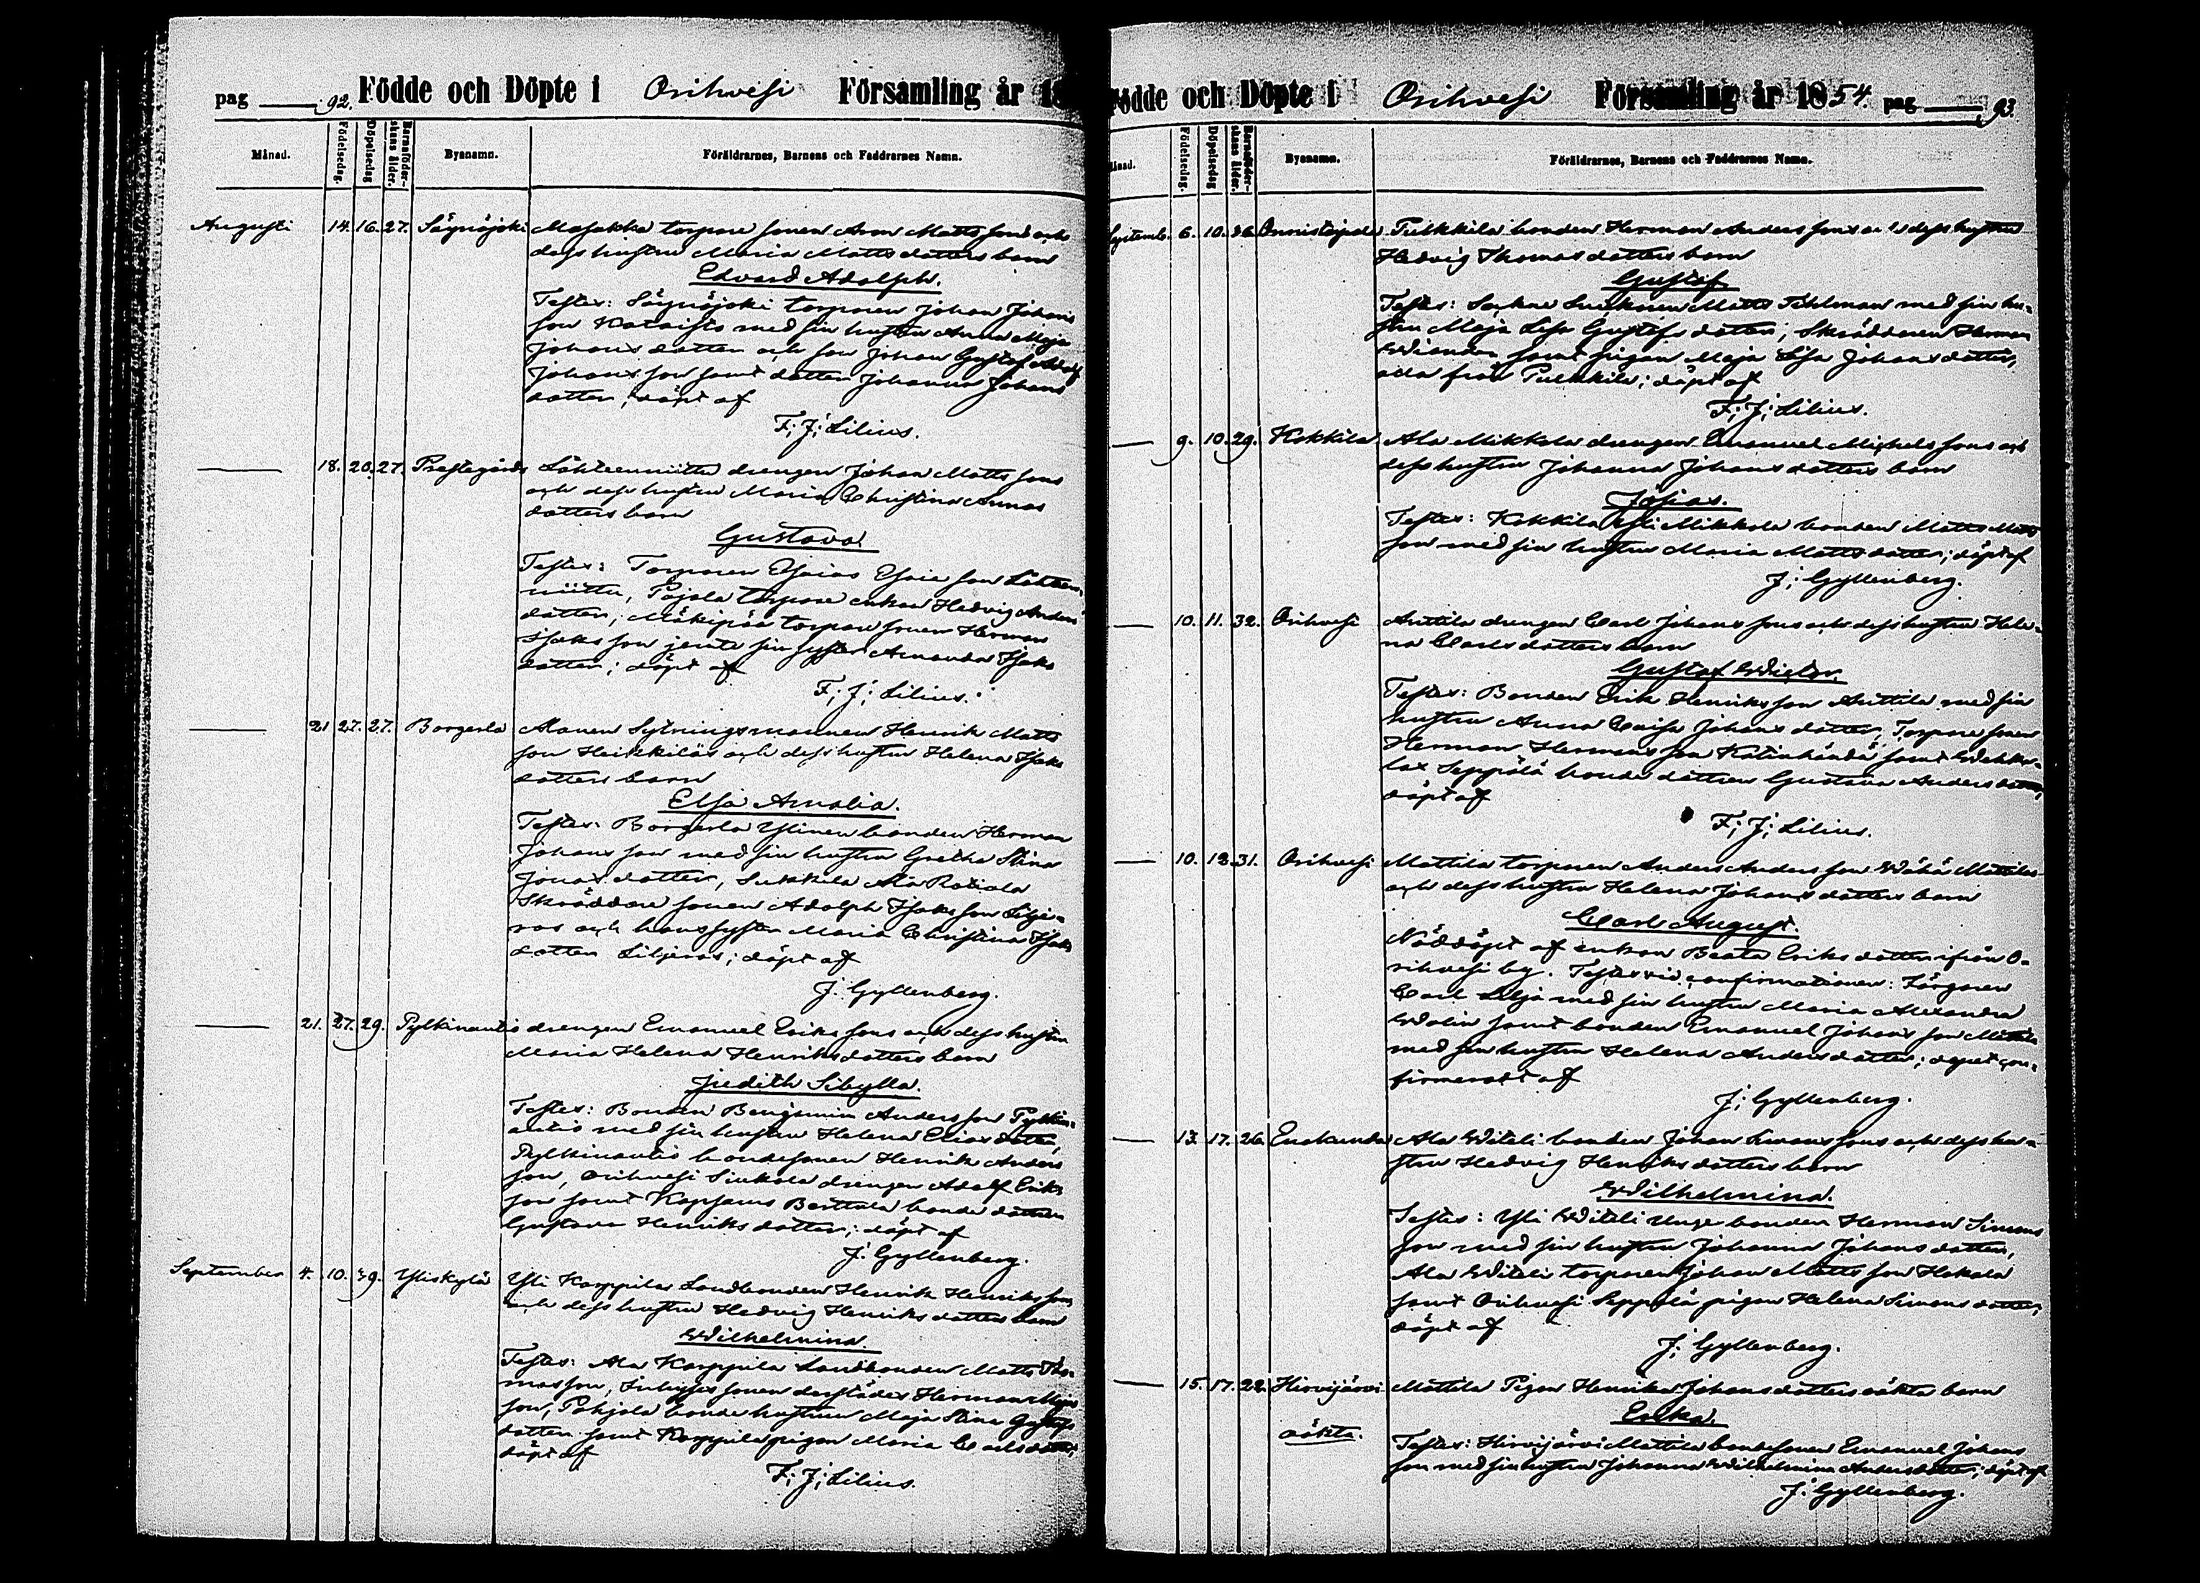 pag 92. Födde och Döpte i Orihvesi Församling år 18
Månad. Födelsedag. Döpelsedag Barnaföderskans ålder. Bynamn. Föräldrarnes, Barnens och Faddrarnes Namn.
Augusti 14. 16. 27. Säynäjoki Masakka torpare sonen Aron Matts sons och
dess hustru Maria Matts dotters barn
Edvard Adolph.
Testes: Säynäjoki torparen Johan Johans
son Kataisto med sin hustru Anna Maja
Johans dotter och son Johan Gustaf Adolf
Johans son samt dotter Johanna Johans
dotter; döpt af
F; J; Lilius.
18. 20. 27. Prestegårds Lähteenmiitta drengen Johan Matts sons
och dess hustru Maria Christina Annas
dotters barn
Gustava.
Testes: Torparen Esaias Esaie son Lähteen-
miitta, Pajala torpare enkan Hedvig Anders
dotter, Mäkipää torpare sonen Herman
Isaks son jemte sin syster Amanda Isaks
dotter; döpt af
F; J; Lilius.
21 27. 27. Borgerla Manen Sytningsmannen Henrik Matts
son Heikkiläs och dess hustru Helena Isaks
dotters barn
Elsa Amalia.
Testes: Borgerla Ylinen bonden Herman
Johans son med sin hustru Gretha Stina
Jonas dotter, Sukkila Ala Rotiala
Skräddare sonen Adolph Isaks son Lilje-
ros och hans syster Maria Christina Isaks
dotter Liljeros; döpt af
J. Gyllenberg.
21. 27. 29. Pylkinautis drengen Emanuel Eriks sons och dess hustru
Maria Helena Henriks dotters barn
Judith Sibylla.
Testes: Bonden Benjamin Anders son Pylkin-
autio med sin hustru Helena Elias dotter,
Pylkinautio bondesonen Henrik Anders
son, Orihvesi Sinkola drengen Adolf Eriks
son samt Kopsamo Berttala bonde dottren
Gustava Henriks dotter; döpt af
J. Gyllenberg.
September 4. 10. 39. Yliskylä Yli Karppila Landbonden Henrik Henriks sons
och dess hustru Hedvig Henriks dotters barn
Wilhelmina.
Testes: Ala Karppila Landbonden Matts Tho-
mas son, Inhyses sonen derstädes Herman
son, Pohjola bonde hustrun Maja Stina Gustafs
dotter samt Karppila pigan Maria Carls dotter,
döpt af
F; J; Lilius.
Födde och Döpte i Orihvesi Församling år 1854. pag 93.
Månad. Födelsedag. Döpelsedag Barnaföderskans ålder. Bynamn. Föräldrarnes, Barnens och Faddrarnes Namn.
Septemb. 6. 10. 36. Onnistaipale Pukkila bonden Herman Anders sons och dess hustru
Hedvig Thomas dotters barn
Gustaf.
Testes: Sockne Snickaren Matts Fihlman med sin hu-
stru Maja Lisa Gustafs dotter; Skräddaren Herman
Widander samt pigan Maja Lisa Johans dotter,
alla från Pukkila; döpt af
F; J; Lilius.
9. 10. 29. Kokkila Ala Mikkola drengen Emanuel Michels sons och
dess hustru Johanna Johans dotters barn
Josias.
Testes: Kokkila Yli Mikkola bonden Matts Matts
son med sin hustru Maria Matts dotter; döpt af
J; Gyllenberg.
10. 11. 32. Orihvesi Anttila drengen Carl Johans sons och dess hustru Hele-
na Carls dotters barn
Gustaf Wictor.
Testes: Bonden Erik Henriks son Anttila med sin
hustru Anna Caisa Johans dotter, Torpare sonen
Herman Hermans son Kotinhändä samt Wehka-
lax Seppälä bonde dottren Gustava Anders dotter,
döpt af
F; J; Lilius.
10. 12. 31. Orihvesi Mattila torparen Anders Anders son Wähä Mattilas
och dess hustru Helena Johans dotters barn
Carl August.
Nöddöpt af enkan Beata Eriks dotter ifrån O-
rihvesi by. Testes vid confirmationen: Färgaren
Carl Lilja med sin hustru Maria Alexandra
Wolin samt bonden Emanuel Johans son Mattila
med sin hustru Helena Anders dotter; dopet con-
firmeradt af
J; Gyllenberg.
13. 17. 26. Enokunda Ala Witali bonden Johan Simons sons och dess hu-
stru Hedvig Henriks dotters barn
Wilhelmina.
Testes: Yli Witali Unge bonden Herman Simons
son med sin hustru Johanna Johans dotter,
Ala Witali torparen Johan Matts son Hokala
samt Orihvesi Seppälä pigan Helena Simons dotter,
döpt af
J; Gyllenberg.
15. 17. 22. Hirvijärvi Mattila Pigan Henrika Johans dotters oäkta barn
Erika.
oäkta. Testes: Hirvijärvi Mattila bondesonen Emanuel Johans
son med sin hustru Johanna Wilhelmina Anders dotter; döpt af
J. Gyllenberg.